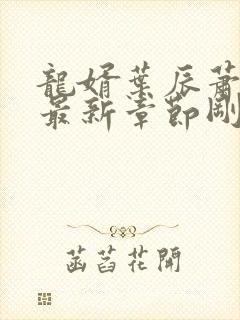 龍婿葉辰蕭
最新章節剛
菡萏花開